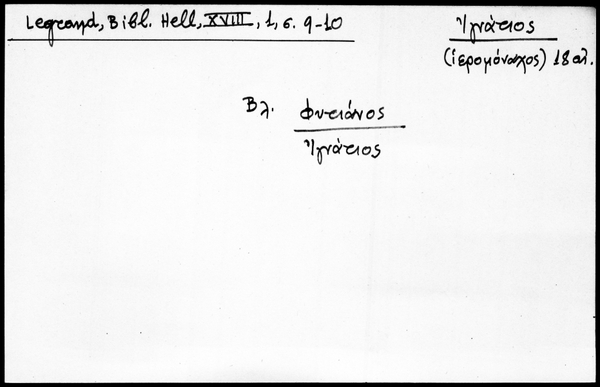 Legrand, Bibl. Hell, XVIII, 1, σ. 9-10
Ἰγνάτιος
(ἱερομόναχος) 18 αἰ.
Βλ. Φυτιάνος
Ἰγνάτιος